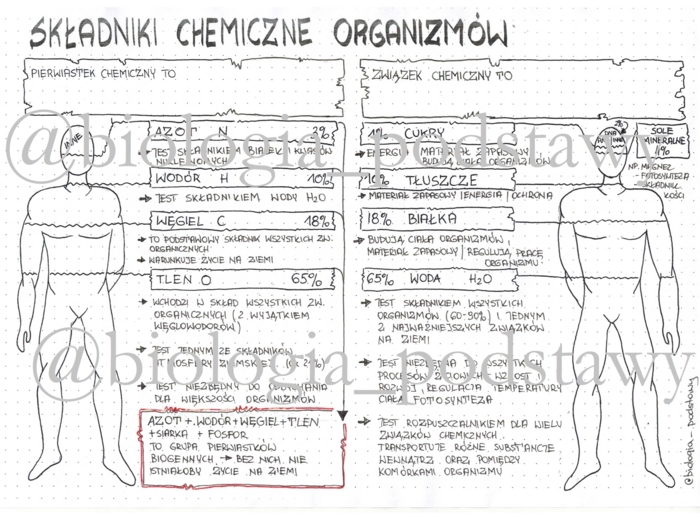 SKŁADNIKI CHEMICZNE ORGANIZMÓW
PIERWIASTEK CHEMICZNY TO
INNE
AZOT N 3%
→ JEST SKŁADNIKIEM BIAŁEK I KWASÓW
NUKLEINOWYCH
WODÓR H 10%
→ JEST SKŁADNIKIEM WODY H2O
WĘGIEL C 18%
→ TO PODSTAWOWY SKŁADNIK WSZYSTKICH ZW.
ORGANICZNYCH
→ WARUNKUJE ŻYCIE NA ZIEMI
TLEN O 65%
→ WCHODZI W SKŁAD WSZYSTKICH ZW.
ORGANICZNYCH (Z WYJĄTKIEM
WĘGLOWODORÓW)
→ JEST JEDNYM ZE SKŁADNIKÓW
ATMOSFERY ZIEMSKIEJ (OK 21%)
→ JEST NIEZBĘDNY DO ODDYCHANIA
DLA WIĘKSZOŚCI ORGANIZMÓW
AZOT + WODÓR + WĘGIEL + TLEN
+ SIARKA + FOSFOR
TO GRUPA PIERWIASTKÓW
BIOGENNYCH → BEZ NICH NIE
ISTNIAŁOBY ŻYCIE NA ZIEMI
ZWIĄZEK CHEMICZNY TO
1% CUKRY
→ ENERGIA MATERIAŁ ZAPASOWY
BUDUJĄ CIAŁA ORGANIZMÓW
10% TŁUSZCZE
→ MATERIAŁ ZAPASOWY | ENERGIA | OCHRONA
18% BIAŁKA
→ BUDUJĄ CIAŁA ORGANIZMÓW,
MATERIAŁ ZAPASOWY | REGULUJĄ PRACĘ
ORGANIZMU
65% WODA H2O
→ JEST SKŁADNIKIEM WSZYSTKICH
ORGANIZMÓW (60-90%) I JEDNYM
Z NAJWAŻNIEJSZYCH ZWIĄZKÓW
NA ZIEMI
→ JEST NIEZBĘDNA DO WSZYSTKICH
PROCESÓW ŻYCIOWYCH WZROST
ROZWÓJ, REGULACJA TEMPERATURY
CIAŁA, FOTOSYNTEZA
→ JEST ROZPUSZCZALNIKIEM DLA WIELU
ZWIĄZKÓW CHEMICZNYCH.
TRANSPORTUJE RÓŻNE SUBSTANCJE
WEWNĄTRZ ORAZ POMIĘDZY
KOMÓRKAMI ORGANIZMU
DNA
INNE
SOLE
MINERALNE
4%
NP. MAGNEZ
- FOTOSYNTEZA
- SKŁADNIK
KOŚCI
@biologia_podstawy
@biologia_podstawy
@biologia_podstawy